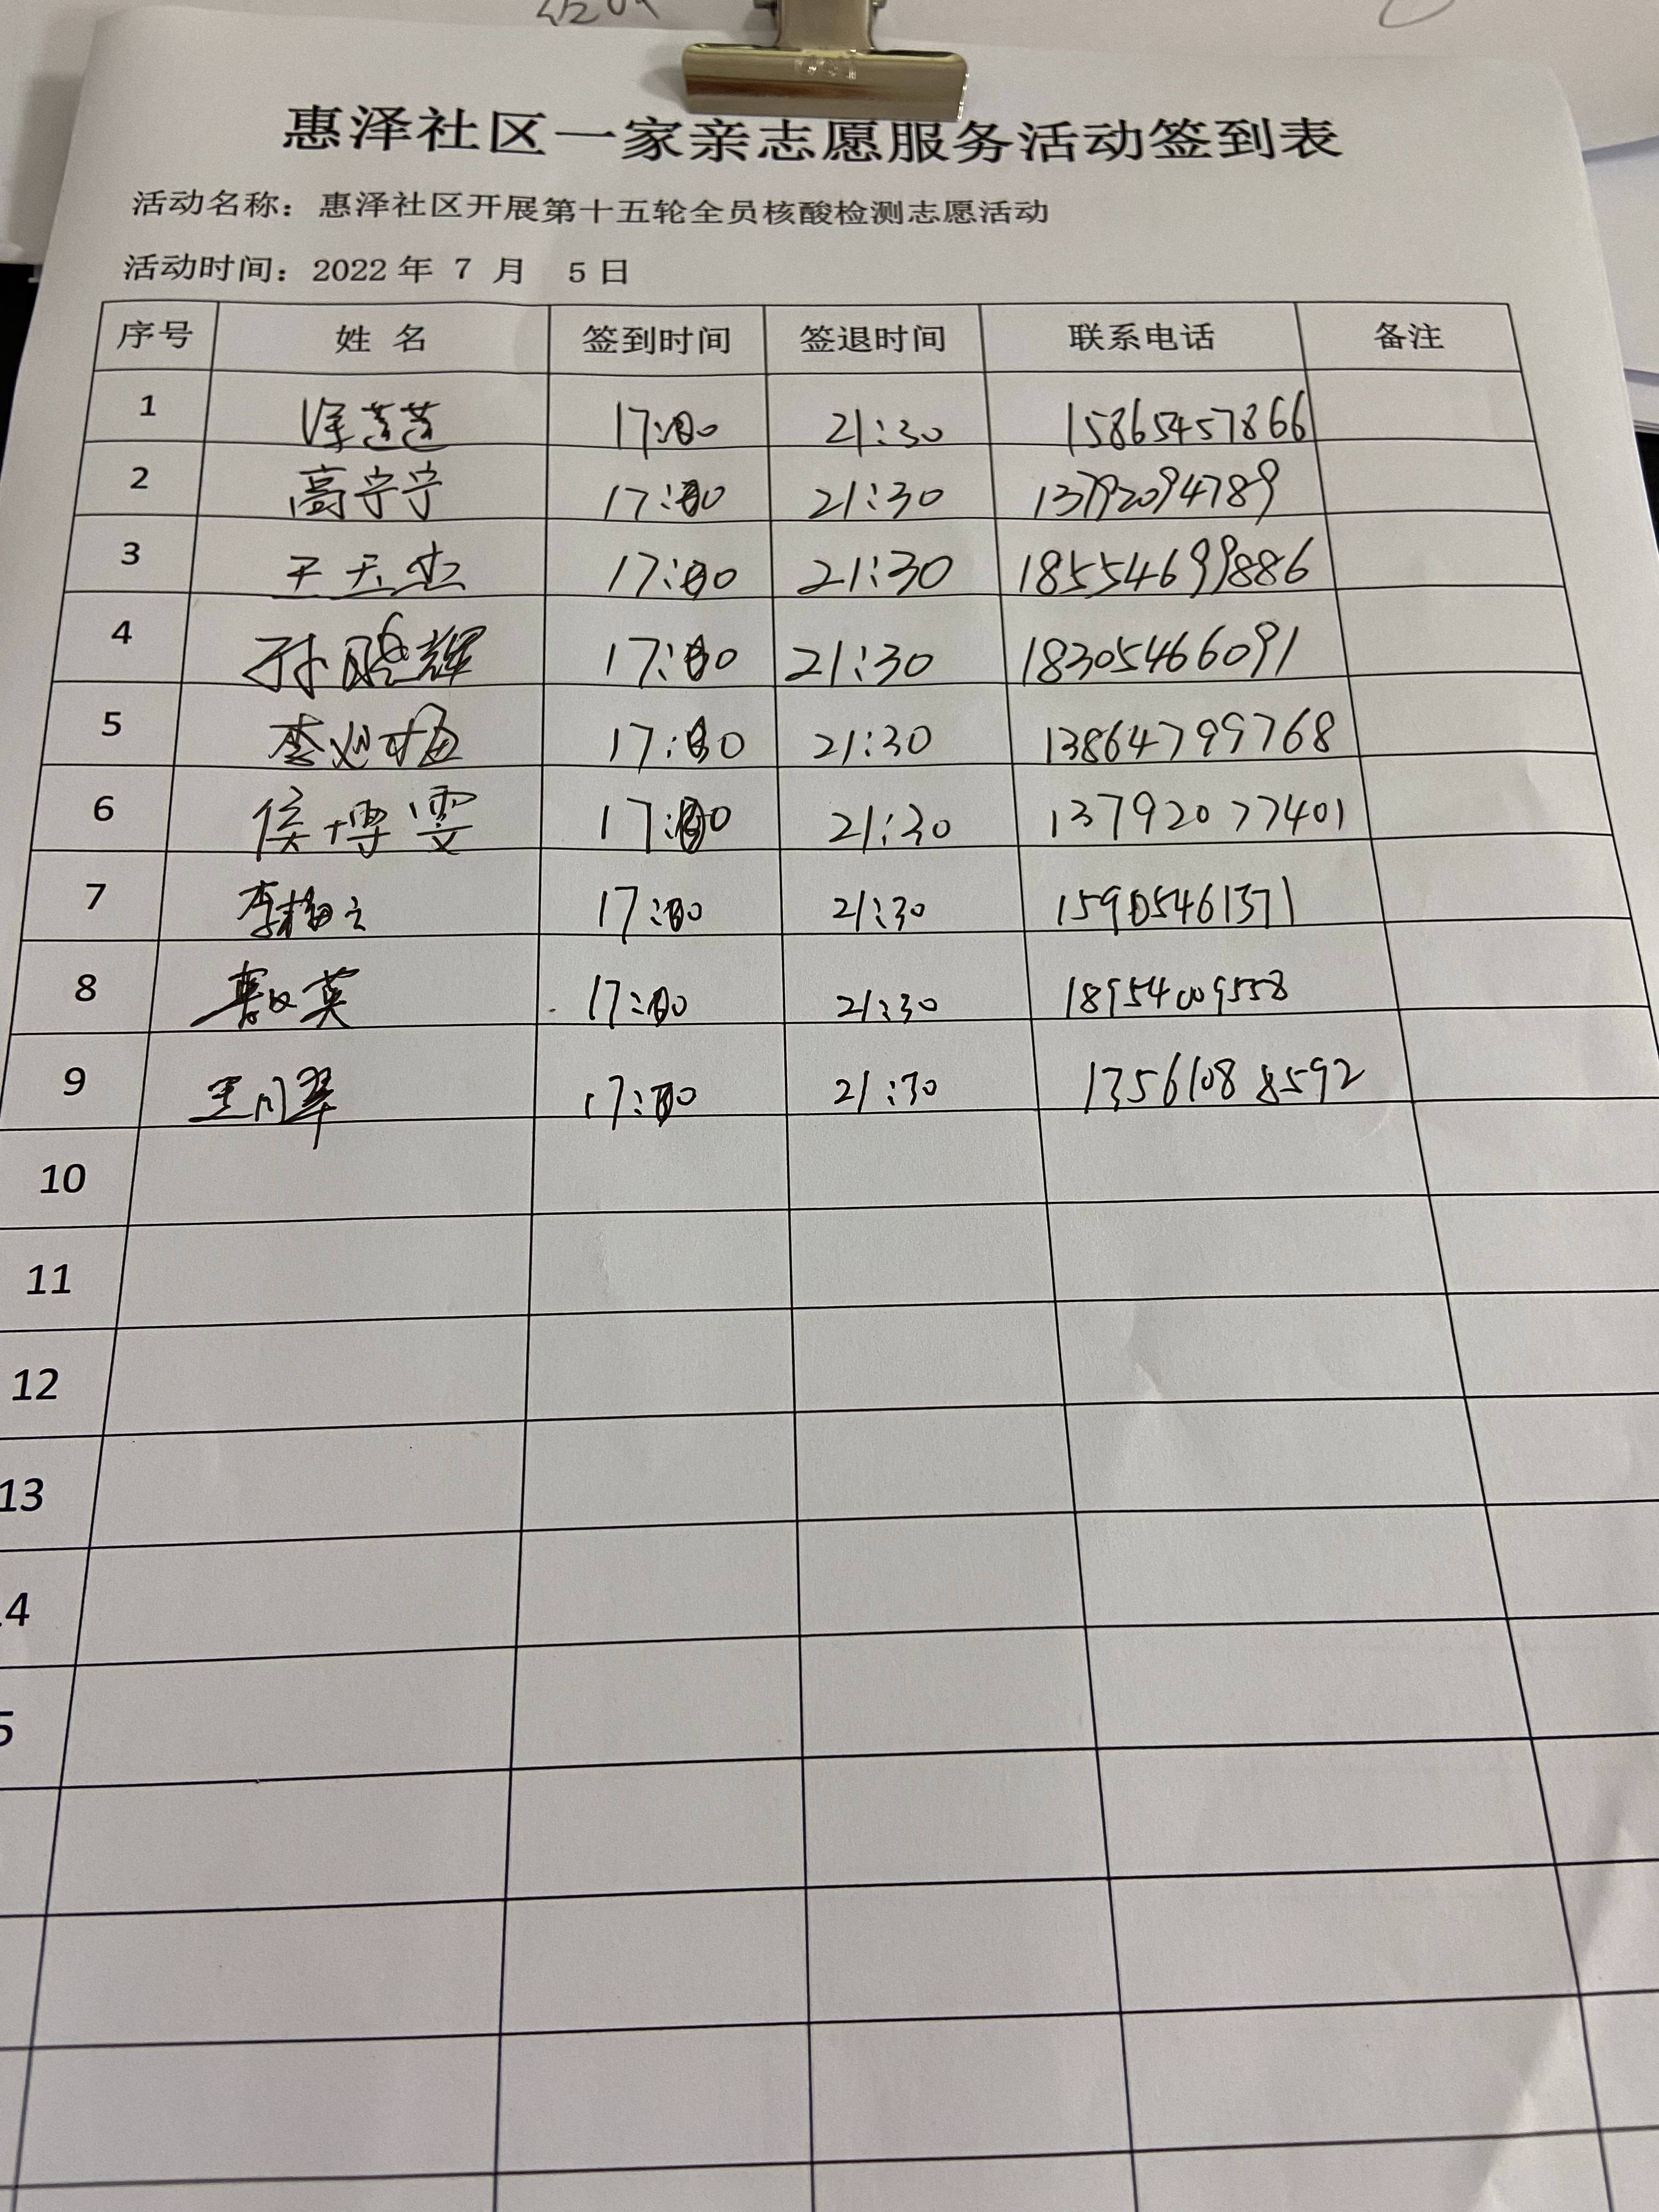 惠泽社区一家亲志愿服务活动签到表
活动名称：惠泽社区开展第十五轮全员核酸检测志愿活动
活动时间：2022 年 7 月 5 日
序号 姓 名 签到时间 签退时间 联系电话 备注
1 徐莲莲 17:00 21:30 15865457866
2 高宁宁 17:00 21:30 13792094789
3 王玉杰 17:00 21:30 18554699886
4 孙鹏辉 17:00 21:30 18305466091
5 李 17:00 21:30 13864799768
6 侯博雯 17:00 21:30 13792077401
7 李 17:00 21:30 15905461371
8 英 17:00 21:30 18954009558
9 王 翠 17:00 21:30 13561088592
10
11
12
13